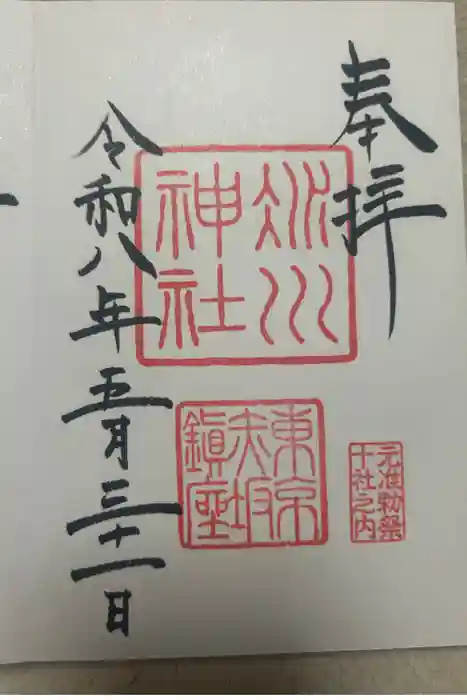 奉拝
氷川
神社
東京
赤坂
鎮座
元准勅祭
十社之内
令和八年五月三十一日